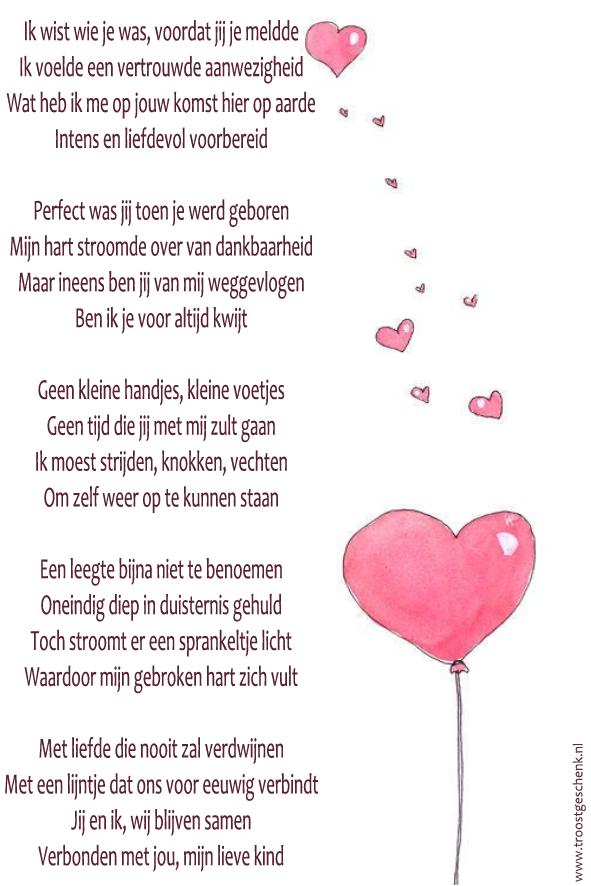 Ik wist wie je was, voordat jij je meldde
Ik voelde een vertrouwde aanwezigheid
Wat heb ik me op jouw komst hier op aarde
Intens en liefdevol voorbereid

Perfect was jij toen je werd geboren
Mijn hart stroomde over van dankbaarheid
Maar ineens ben jij van mij weggevlogen
Ben ik je voor altijd kwijt

Geen kleine handjes, kleine voetjes
Geen tijd die jij met mij zult gaan
Ik moest strijden, knokken, vechten
Om zelf weer op te kunnen staan

Een leegte bijna niet te benoemen
Oneindig diep in duisternis gehuld
Toch stroomt er een sprankeltje licht
Waardoor mijn gebroken hart zich vult

Met liefde die nooit zal verdwijnen
Met een lijntje dat ons voor eeuwig verbindt
Jij en ik, wij blijven samen
Verbonden met jou, mijn lieve kind

www.troostgeschenk.nl